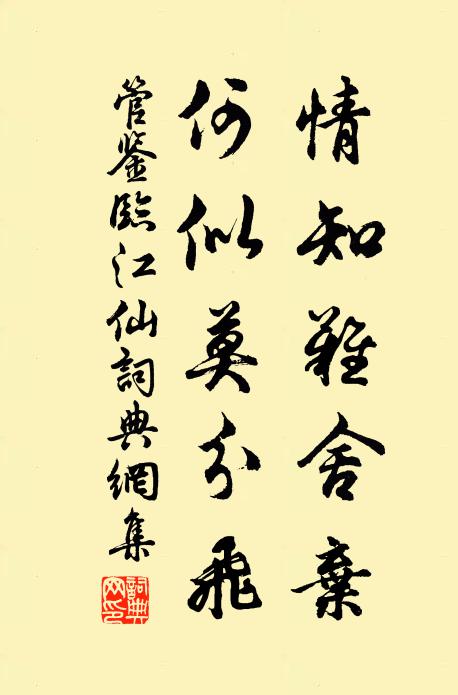 情知難舍棄
何似莫分飛
管鉴臨江仙詞典網集
詞典網印